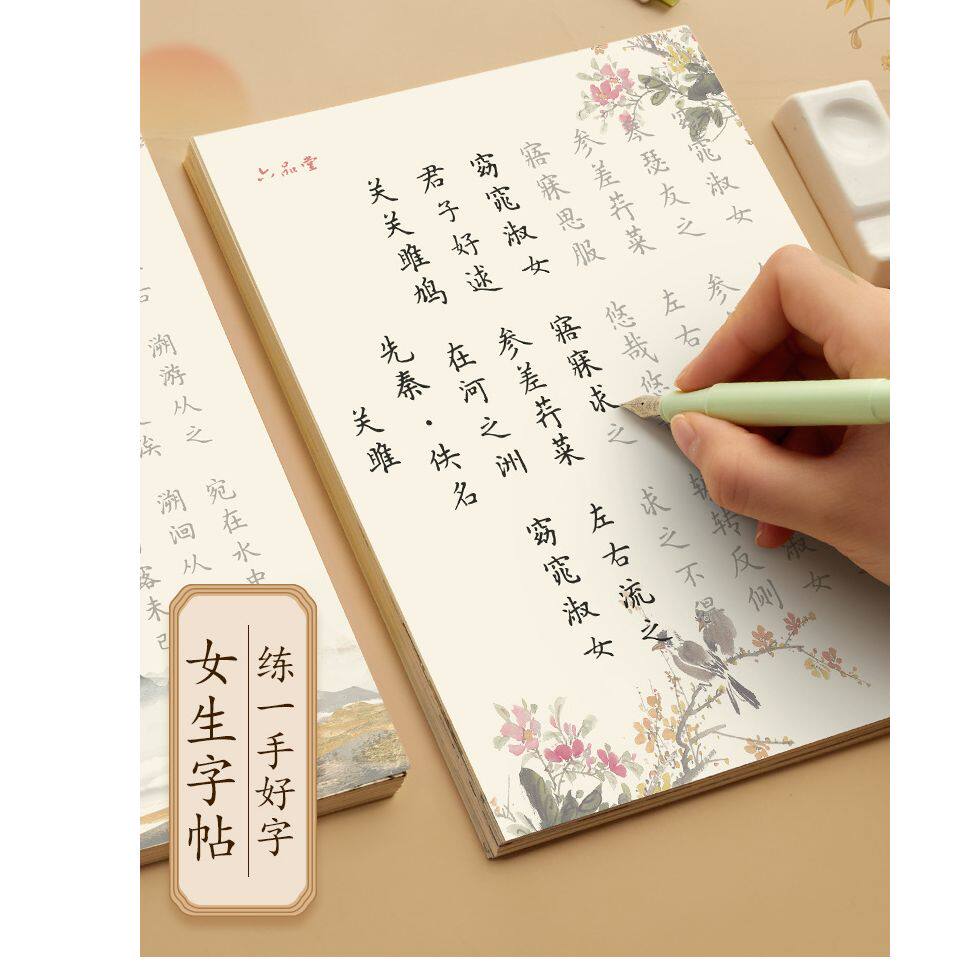 六品堂
关雎
先秦·佚名
关关雎鸠 在河之洲 窈窕淑女
君子好逑 参差荇菜 左右流之
窈窕淑女 寤寐求之 求之不
寤寐思服 悠哉悠 转反侧
参差荇菜 左右 淑女
琴瑟友之 参
窈窕淑女
右 涘 未已
溯游从之 溯洄从
宛在水中
女生字帖
练一手好字